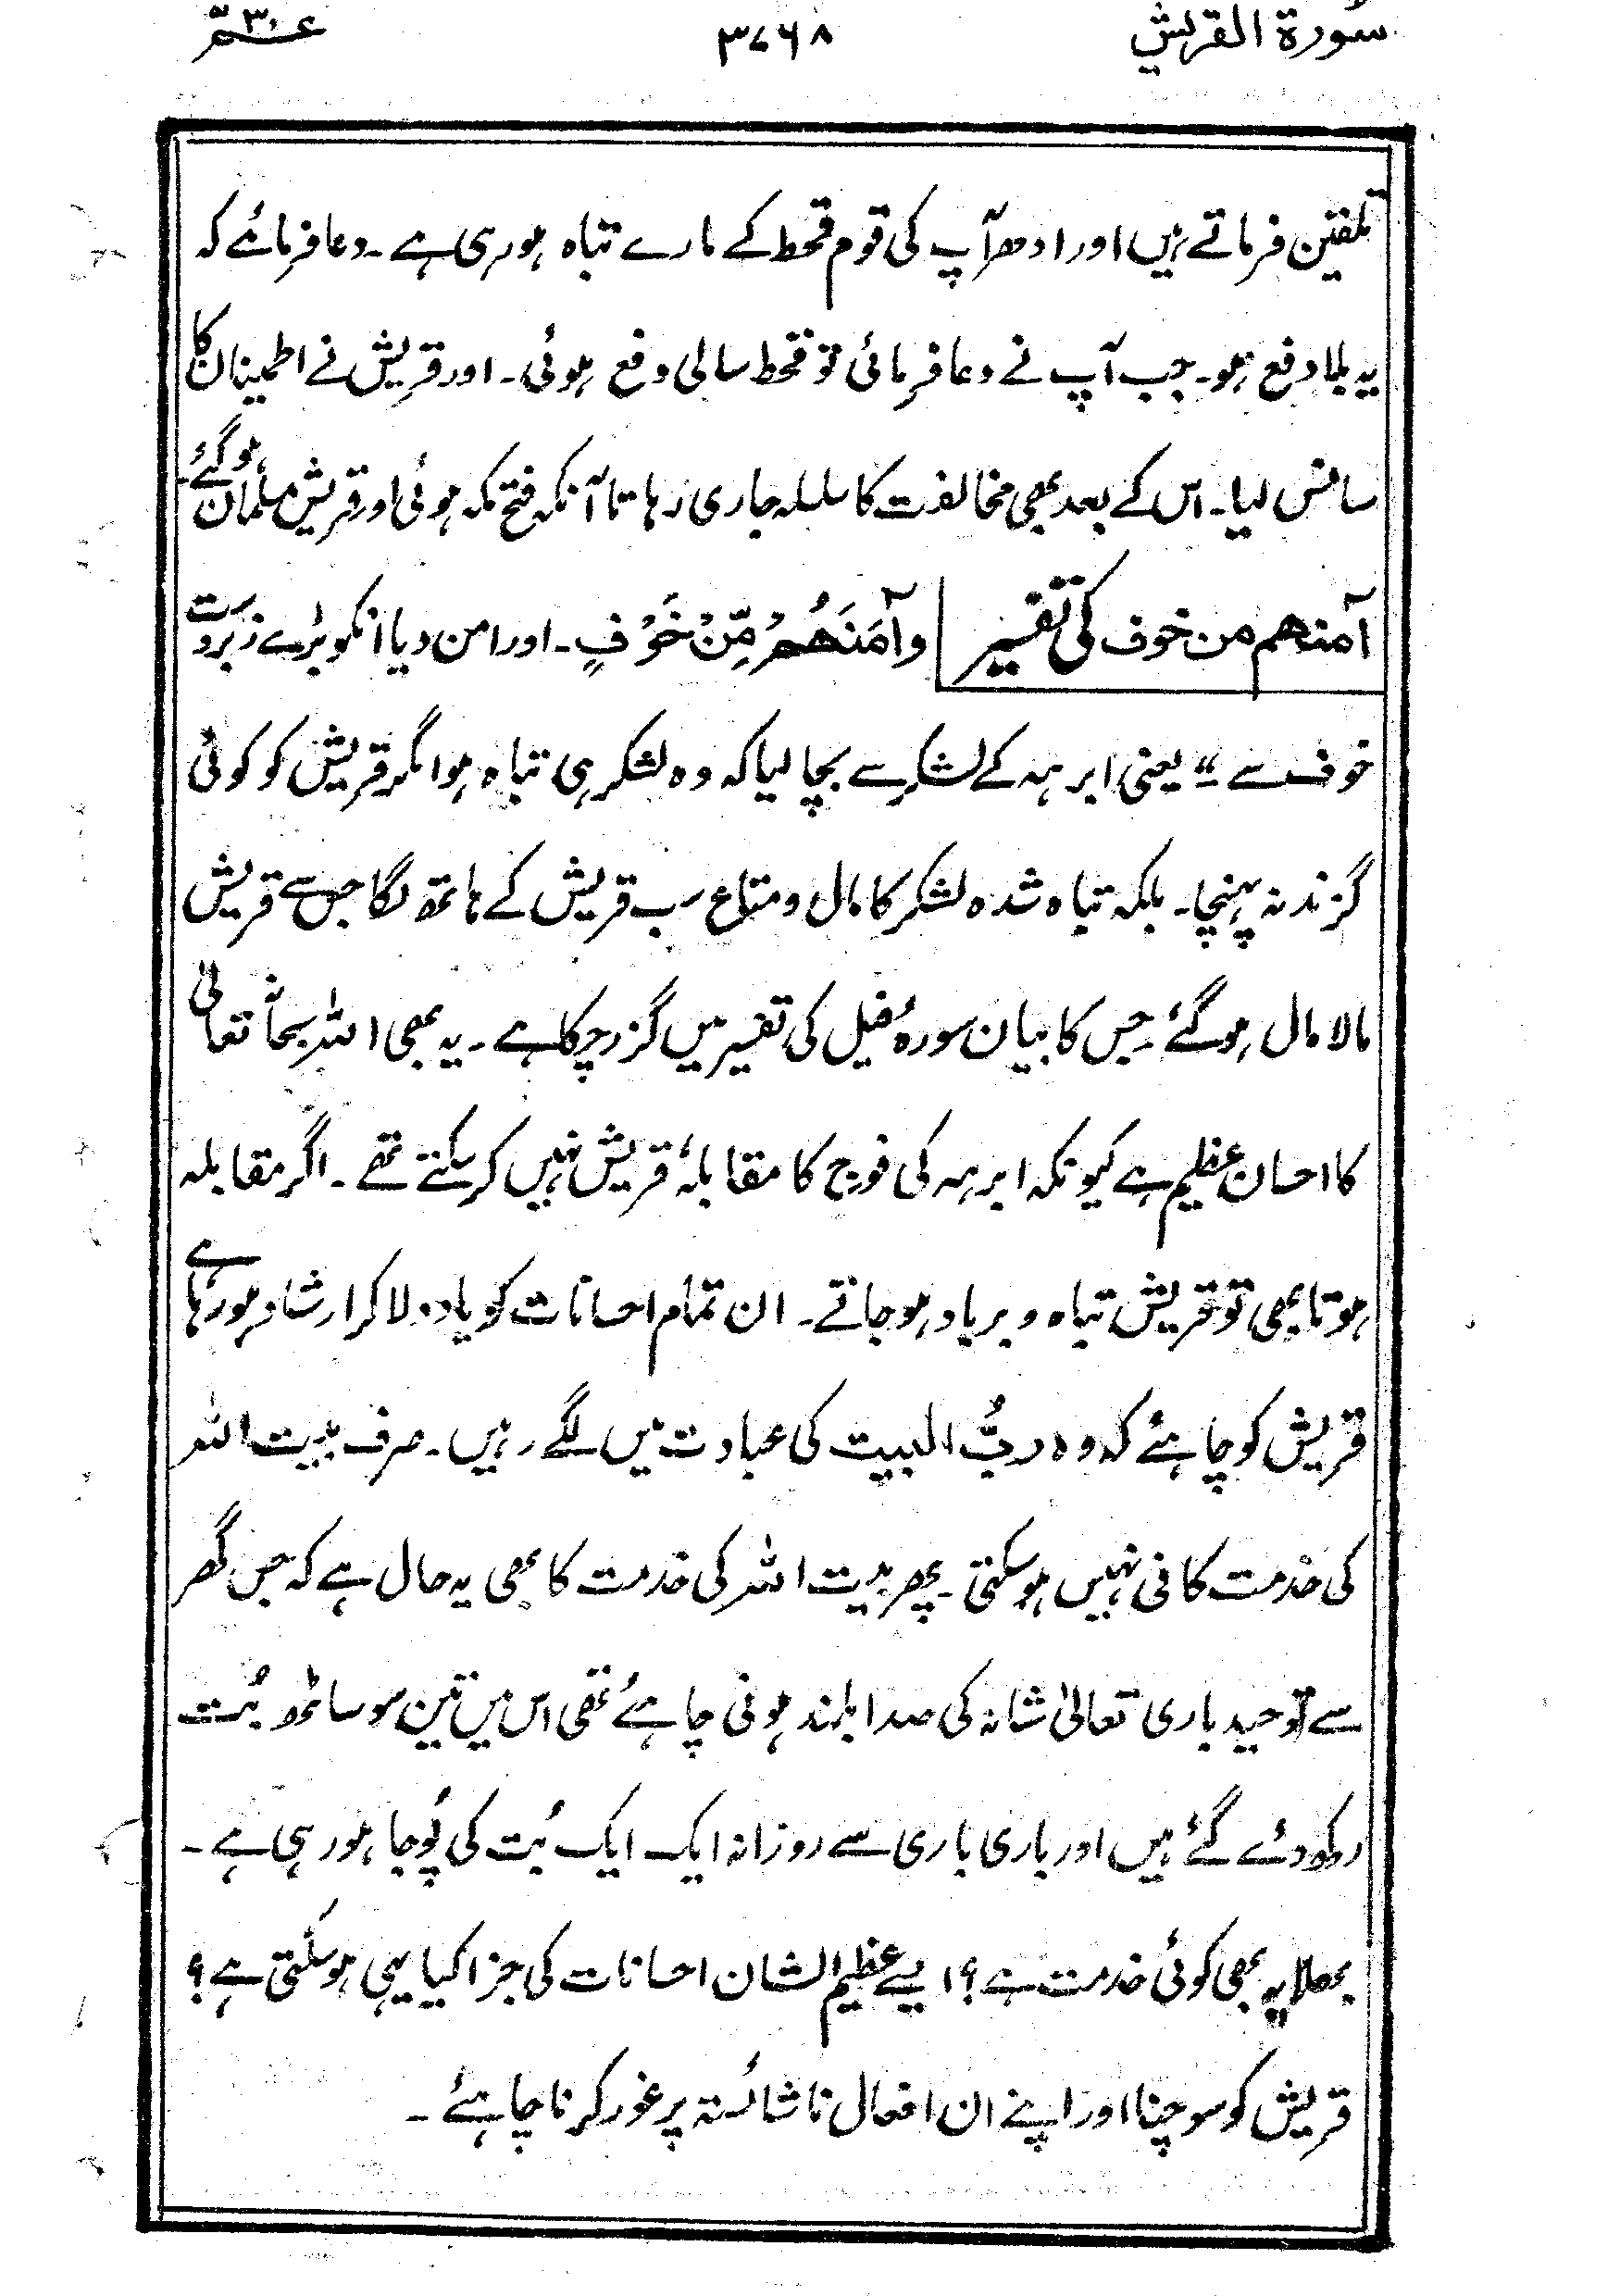 سورة القریش ۳۷۶۸ عمّ ۳۰
تلقین فرماتے ہیں اور ادھر آپ کی قوم قحط کے مارے تباہ ہو رہی ہے۔ دعا فرمائے کہ
یہ بلا دفع ہو۔ جب آپ نے دعا فرمائی تو قحط سالی دفع ہوئی۔ اور قریش نے اطمینان کا
سانس لیا۔ اس کے بعد بھی مخالفت کا سلسلہ جاری رہا تا آنکہ فتح مکہ ہوئی اور قریش مسلمان ہو گئے۔
آمنھم من خوف کی تفسیر وَآمَنَهُمْ مِّنْ خَوْفٍ۔ اور امن دیا انکو بڑے زبردست
خوف سے “ یعنی ابرہہ کے لشکر سے بچا لیا کہ وہ لشکر ہی تباہ ہوا مگر قریش کو کوئی
گزند نہ پہنچا۔ بلکہ تباہ شدہ لشکر کا مال و متاع سب قریش کے ہاتھ لگا جس سے قریش
مالا مال ہو گئے۔ جس کا بیان سورہٴ فیل کی تفسیر میں گزر چکا ہے۔ یہ بھی اللہ سبحانہٗ تعالیٰ
کا احسان عظیم ہے کیونکہ ابرہہ کی فوج کا مقابلہ قریش نہیں کر سکتے تھے۔ اگر مقابلہ
ہوتا بھی تو قریش تباہ و برباد ہو جاتے۔ ان تمام احسانات کو یاد دلا کر ارشاد ہو رہا ہے
قریش کو چاہئے کہ وہ ربُّ البیت کی عبادت میں لگے رہیں۔ صرف بیت اللہ
کی خدمت کافی نہیں ہو سکتی۔ پھر بیت اللہ کی خدمت کا بھی یہ حال ہے کہ جس گھر
سے توحید باری تعالیٰ شانہ کی صدا بلند ہونی چاہئے تھی اس میں تین سو ساٹھ بُت
رکھ دئے گئے ہیں اور باری باری سے روزانہ ایک ایک بُت کی پُوجا ہو رہی ہے۔
بھلا یہ بھی کوئی خدمت ہے؟ ایسے عظیم الشان احسانات کی جزا کیا یہی ہو سکتی ہے؟
قریش کو سوچنا اور اپنے ان افعال ناشائستہ پر غور کرنا چاہئے۔